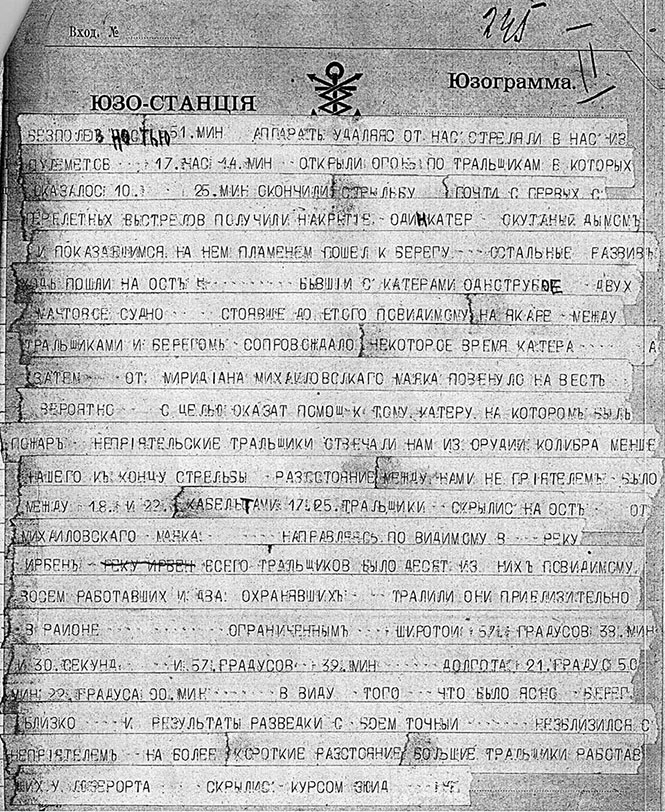 Вход. №
245
II
Юзограмма.
ЮЗО-СТАНЦІЯ
БЕЗПОЛЕЗНОСТЬЮ 51 МИН АППАРАТЬ УДАЛЯЯС ОТ НАС СТРЕЛЯЛИ В НАС ИЗ
ПУЛЕМЕТОВ 17 ЧАС 14 МИН ОТКРЫЛИ ОГОНЬ ПО ТРАЛЬЩИКАМ В КОТОРЫХ
ОКАЗАЛОС 10. 25 МИН ОКОНЧИЛИ СТРЫЛЬБУ ПОЧТИ С ПЕРВЫХ С
ПЕРЕЛЕТНЫХ ВЫСТРЕЛОВ ПОЛУЧИЛИ НАКРЫТІЕ ОДИНКАТЕР ОКУТАНЫЙ ДЫМОМЪ
И ПОКАЗАВШИМСЯ НА НЕМ ПЛАМЕНЕМ ПОШЕЛ К БЕРЕГУ ОСТАЛЬНЫЕ РАЗВИВЪ
ХОДЬ ПОШЛИ НА ОСТЬ БЫВШІИ С КАТЕРАМИ ОДНОТРУБНОЕ ДВУХ
МАЧТОВОЕ СУДНО СТОЯВШЕ ДО ЕТОГО ПОВИДИМОМУ НА ЯКАРЕ МЕЖДУ
ТРАЛЬЩИКАМИ И БЕРЕГОМЬ СОПРОВОЖДАЛО НЕКОТОРОЕ ВРЕМЯ КАТЕРА А
ЗАТЕМ ОТ МИРИДІАНА МИХАИЛОВСЛКАГО МАЯКА ПОВЕНУЛО НА ВЕСТЬ
ВЕРОЯТНО С ЦЕЛЬЮ ОКАЗАТ ПОМОЩ К ТОМУ КАТЕРУ НА КОТОРОМЪ БЫЛЬ
ПОЖАРЬ НЕПРІЯТЕЛЬСКИЕ ТРАЛЬЩИКИ ОТВЕЧАЛИ НАМ ИЗ ОРУДИИ КОЛИБРА МЕНЬШЕ
НАШЕГО КЪ КОНЦУ СТРЕЛЬБЫ РАЗСТОЯНИЕ МЕЖДУ НАМИ НЕ ПРІЯТЕЛЕМЪ БЫЛО
МЕЖДУ 18 И 22 КАБЕЛЬТАЧИ 17 25 ТРАЛЬЩИКИ СКРЫЛИС НА ОСТЬ ОТ
МИХАИЛОВСКАГО МАЯКА НАПРАВЛЯЯСЬ ПО ВИДИМОМУ В РЕКУ
ИРБЕНЬ РЕКУ ИРБЕН ВСЕГО ТРАЛЬЩИКОВ БЫЛО ДЕСЯТ ИЗ НИХЪ ПОВИДИМОМУ
ВОСЕМ РАБОТАВШИХ И ДВА ОХРАНЯВШИХЬ ТРАЛИЛИ ОНИ ПРИБЛИЗИТЕЛЬНО
В РАИОНЕ ОГРАНИЧЕННЫМЪ ШИРОТОИ 57 ГРАДУСОВ 38 МИН
И 30 СЕКУНД И 57 ГРАДУСОВ 39 МИН ДОЛГОТА 21 ГРАДУС 50
МИН 22 ГРАДУСА 00 МИН В ВИДУ ТОГО ЧТО БЫЛО ЯСНО БЕРЕГ
БЛИЗКО И РЕЗУЛЬТАТЫ РАЗВЕДКИ С БОЕМ ТОЧНЫИ НЕЗБЛИЗИЛСЯ С
НЕПРІЯТЕЛЕМЪ НА БОЛЕЕ КОРОТКИЕ РАЗСТОЯНИЕ БОЛЬШИЕ ТРАЛЬЩИКИ РАБОТАВ
ШИХ У ЛЮЗЕРОРТА СКРЫЛИС КУРСОМ ЗЮИД